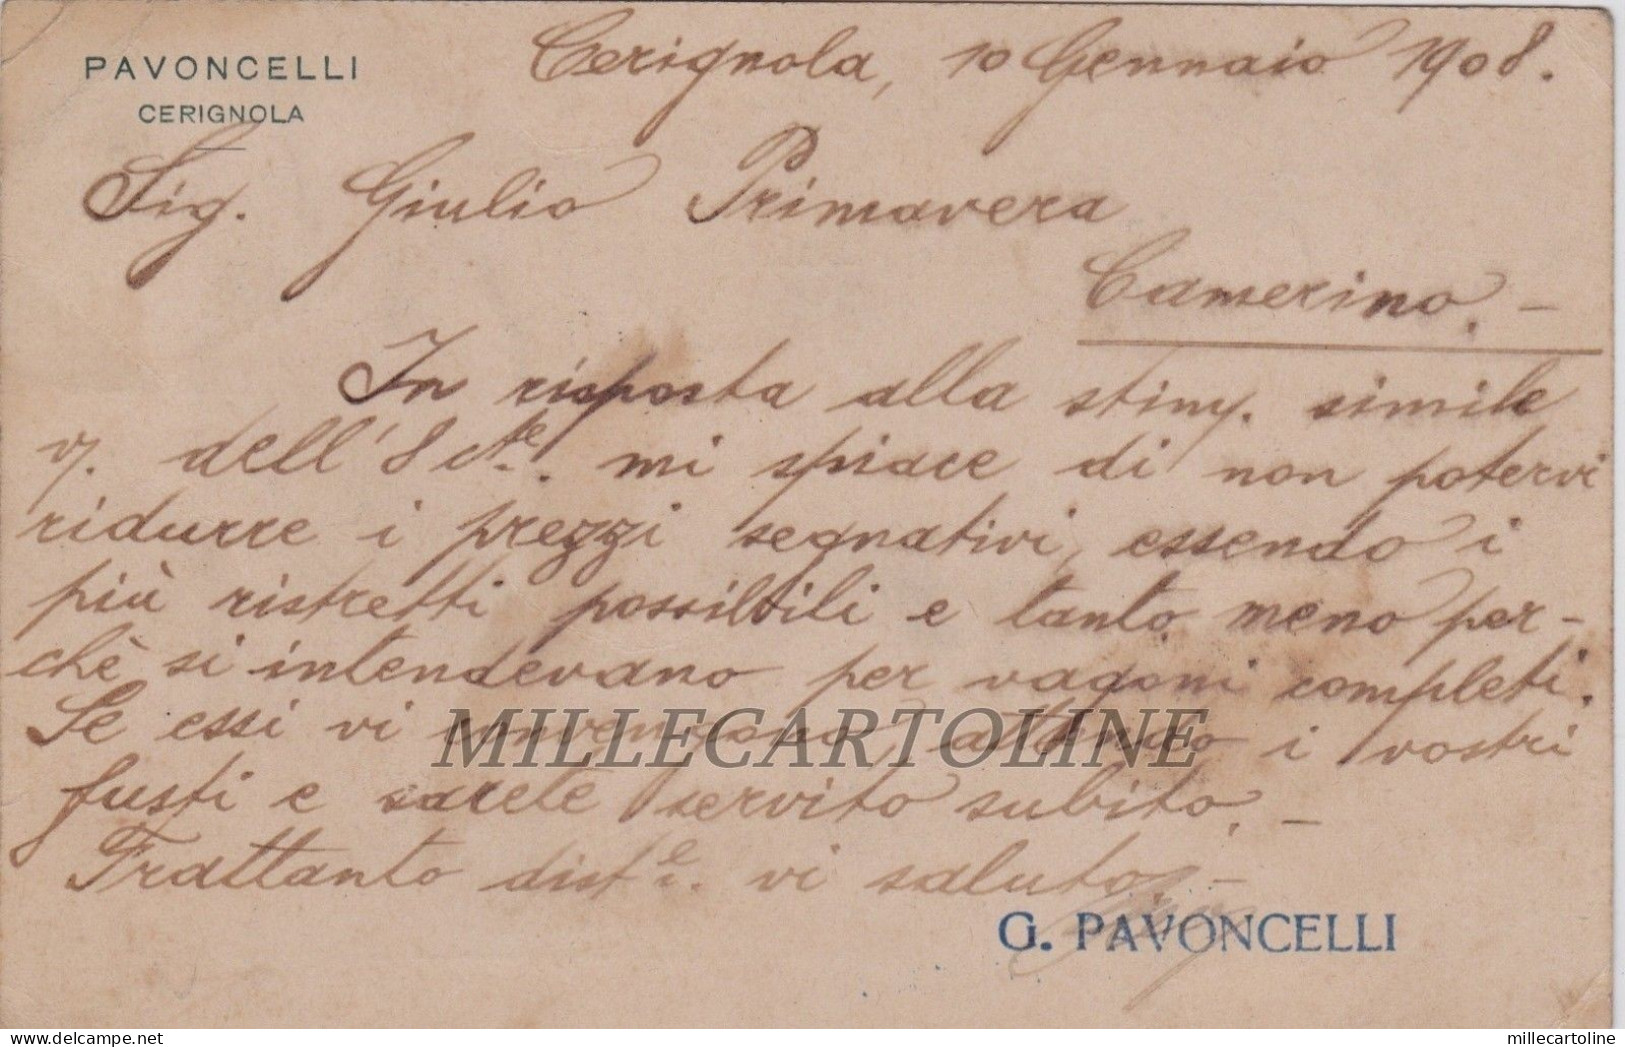 PAVONCELLI
CERIGNOLA
Cerignola, 10 Gennaio 1908.
Sig. Giulio Primavera
Camerino. –
In risposta alla stim. simile
v. dell' 8 cte. mi spiace di non potervi
ridurre i prezzi segnativi, essendo i
più ristretti possibili e tanto meno per-
chè si intendevano per vagoni completi.
Se essi vi convengono, attendo i vostri
fusti e sarete servito subito. –
Frattanto dist.e vi saluto. –
G. PAVONCELLI
MILLECARTOLINE
millecartoline